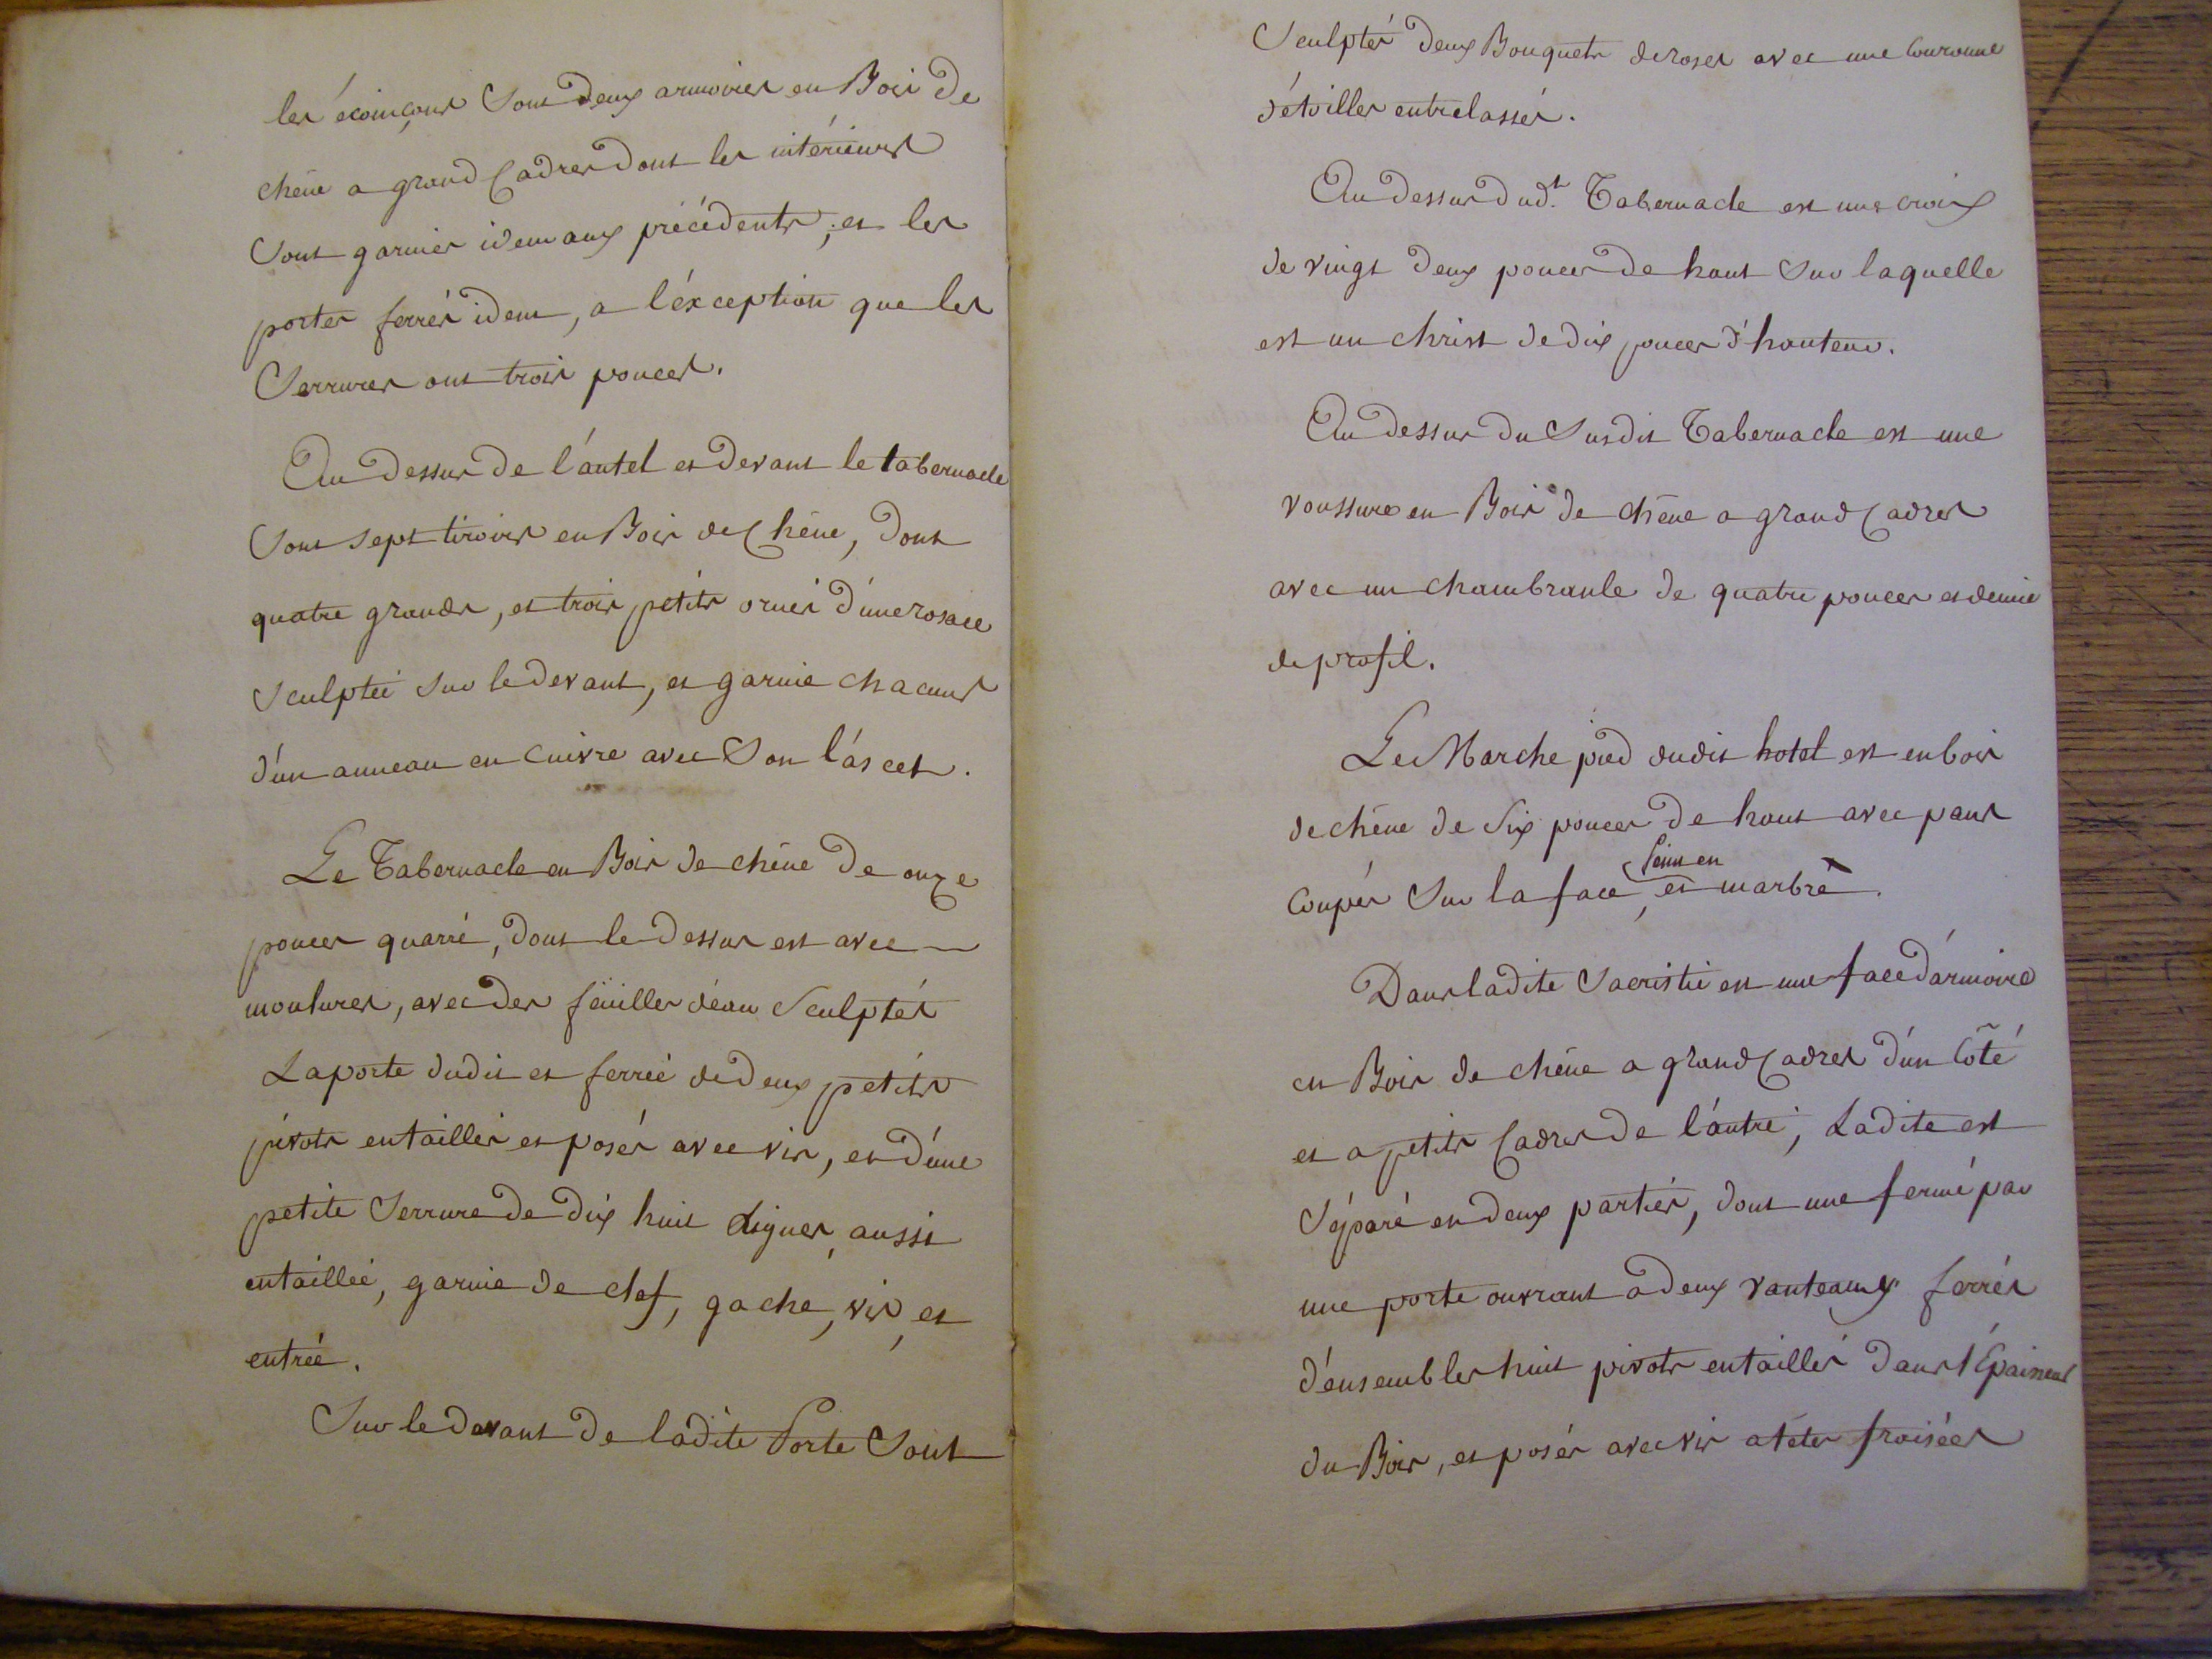 les écoinçons Sont deux armoires en Bois De
chêne a grand Cadres Dont les intérieurs
Sont garnies idem aux précédents, et les
portes ferrés idem, a l'éxception que les
Serrures ont trois pouces.
Au Dessus De l'áutel et Devant le tabernacle
Sont Sept tiroirs en Bois de Chêne, Dont
quatre grands, et trois petits ornés D'une rosace
Sculptée Sur le devant, et garnie chacuns
d'un anneau en Cuivre avec Son láscet.
Le Tabernacle en Bois de chêne De onze
pouces quarré, Dont le Dessus est avec
moulures, avec Des feüilles déau Sculptés
La porte dudit et ferreé de Deux petits
pivots entaillés et posés avec vis, et D'une
petite Serrure De Dix huit Lignes aussi
entailleé, garnie De clef, gache, vis, et
entreé.
Sur le Devant De ladite Porte Sont
Sculptés Deux Bouquets de roses avec une Couronne
d'étoilles entrelassés.
Au Dessus Dudt. Tabernacle est une croix
de vingt Deux pouces De haut Sur laquelle
est un christ de dix pouces d'hauteur.
Au Dessus Du Susdit Tabernacle est une
voussure en Bois De chêne a grand Cadres
avec un chambranle de quatre pouces et demie
de profil.
Le Marche pied dudit hotel est en bois
de chêne de Six pouces De haut avec pans
Coupés Sur la face, et marbré.
Peint en
Dans ladite Sacristie est une face D'ármoire
en Bois de chêne a grand Cadres d'un Côté
et a petits Cadres De l'áutre, Ladite est
Séparé en Deux partiés, dont une fermé par
une porte ouvrant a Deux vanteaux ferrés
d'énsembles huit pivots entaillés Dans l'Épaisseur
du Bois, et posés avec vis a têtes fraisées